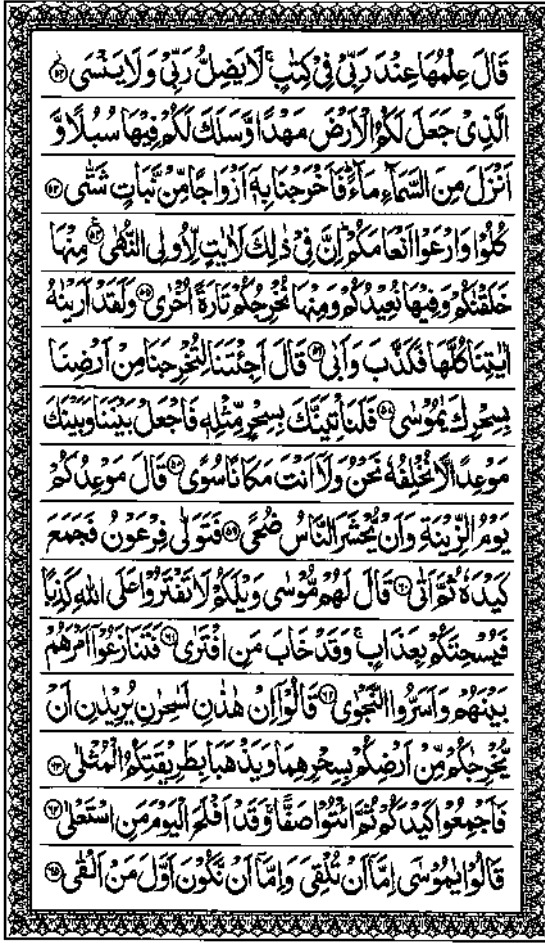 قَالَ عِلْمُهَا عِنْدَ رَبِّیْ فِیْ كِتٰبٍ ۚ لَا یَضِلُّ رَبِّیْ وَ لَا یَنْسَی ﴿۵۲﴾
الَّذِیْ جَعَلَ لَكُمُ الْاَرْضَ مَهْدًا وَّ سَلَكَ لَكُمْ فِیْهَا سُبُلًا وَّ
اَنْزَلَ مِنَ السَّمَآءِ مَآءً ؕ فَاَخْرَجْنَا بِهٖۤ اَزْوَاجًا مِّنْ نَّبَاتٍ شَتّٰی ﴿۵۳﴾
كُلُوْا وَ ارْعَوْا اَنْعَامَكُمْ ؕ اِنَّ فِیْ ذٰلِكَ لَاٰیٰتٍ لِّاُولِی النُّهٰی ﴿۵۴﴾ مِنْهَا
خَلَقْنٰكُمْ وَ فِیْهَا نُعِیْدُكُمْ وَ مِنْهَا نُخْرِجُكُمْ تَارَةً اُخْرٰی ﴿۵۵﴾ وَ لَقَدْ اَرَیْنٰهُ
اٰیٰتِنَا كُلَّهَا فَكَذَّبَ وَ اَبٰی ﴿۵۶﴾ قَالَ اَجِئْتَنَا لِتُخْرِجَنَا مِنْ اَرْضِنَا
بِسِحْرِكَ یٰمُوْسٰی ﴿۵۷﴾ فَلَنَاْتِیَنَّكَ بِسِحْرٍ مِّثْلِهٖ فَاجْعَلْ بَیْنَنَا وَ بَیْنَكَ
مَوْعِدًا لَّا نُخْلِفُهٗ نَحْنُ وَ لَاۤ اَنْتَ مَكَانًا سُوًی ﴿۵۸﴾ قَالَ مَوْعِدُكُمْ
یَوْمُ الزِّیْنَةِ وَ اَنْ یُّحْشَرَ النَّاسُ ضُحًی ﴿۵۹﴾ فَتَوَلّٰی فِرْعَوْنُ فَجَمَعَ
كَیْدَهٗ ثُمَّ اَتٰی ﴿۶۰﴾ قَالَ لَهُمْ مُّوْسٰی وَیْلَكُمْ لَا تَفْتَرُوْا عَلَی اللّٰهِ كَذِبًا
فَیُسْحِتَكُمْ بِعَذَابٍ ۚ وَ قَدْ خَابَ مَنِ افْتَرٰی ﴿۶۱﴾ فَتَنَازَعُوْۤا اَمْرَهُمْ
بَیْنَهُمْ وَ اَسَرُّوا النَّجْوٰی ﴿۶۲﴾ قَالُوْۤا اِنْ هٰذٰنِ لَسٰحِرٰنِ یُرِیْدٰنِ اَنْ
یُّخْرِجٰكُمْ مِّنْ اَرْضِكُمْ بِسِحْرِهِمَا وَ یَذْهَبَا بِطَرِیْقَتِكُمُ الْمُثْلٰی ﴿۶۳﴾
فَاَجْمِعُوْا كَیْدَكُمْ ثُمَّ ائْتُوْا صَفًّا ۚ وَ قَدْ اَفْلَحَ الْیَوْمَ مَنِ اسْتَعْلٰی ﴿۶۴﴾
قَالُوْا یٰمُوْسٰۤی اِمَّاۤ اَنْ تُلْقِیَ وَ اِمَّاۤ اَنْ نَّكُوْنَ اَوَّلَ مَنْ اَلْقٰی ﴿۶۵﴾